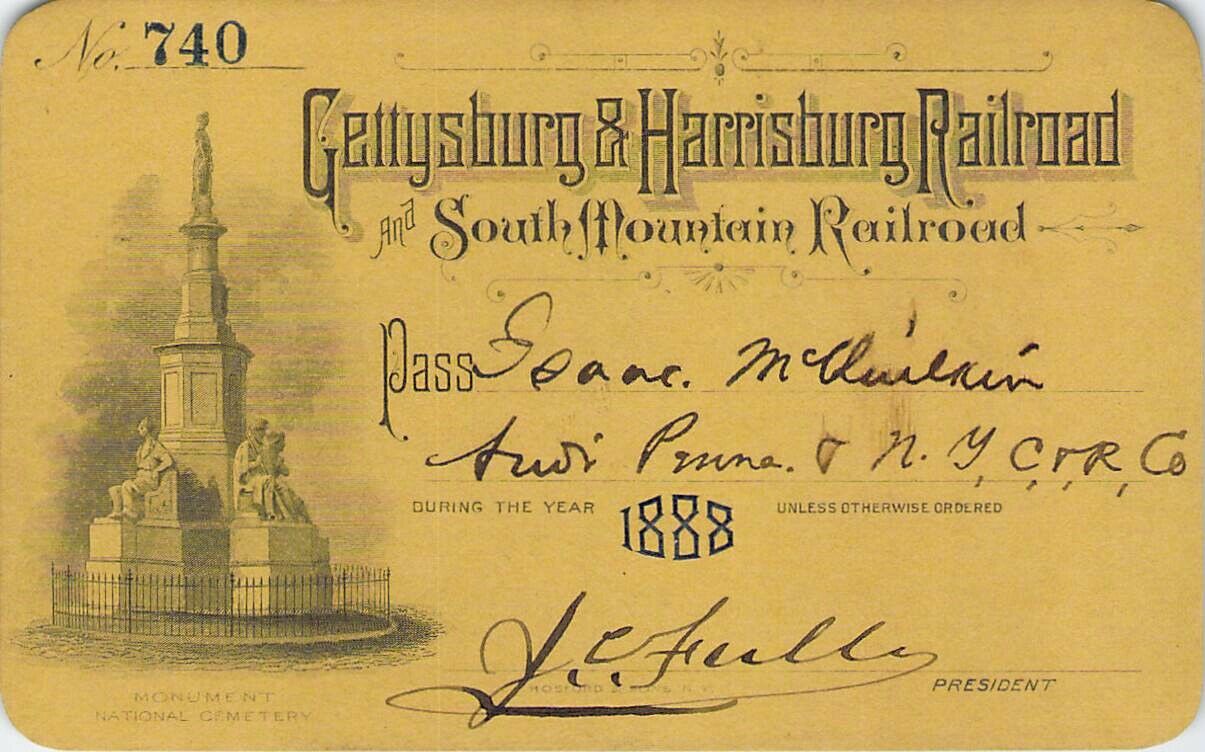 No. 740
Gettysburg & Harrisburg Railroad
And South Mountain Railroad
Pass Isaac. McQuilkin
Penna. & N. Y. C & R. Co
DURING THE YEAR 1888 UNLESS OTHERWISE ORDERED
J. C. Fuller
HOSFORD & SONS N.Y.
PRESIDENT
MONUMENT
NATIONAL CEMETERY